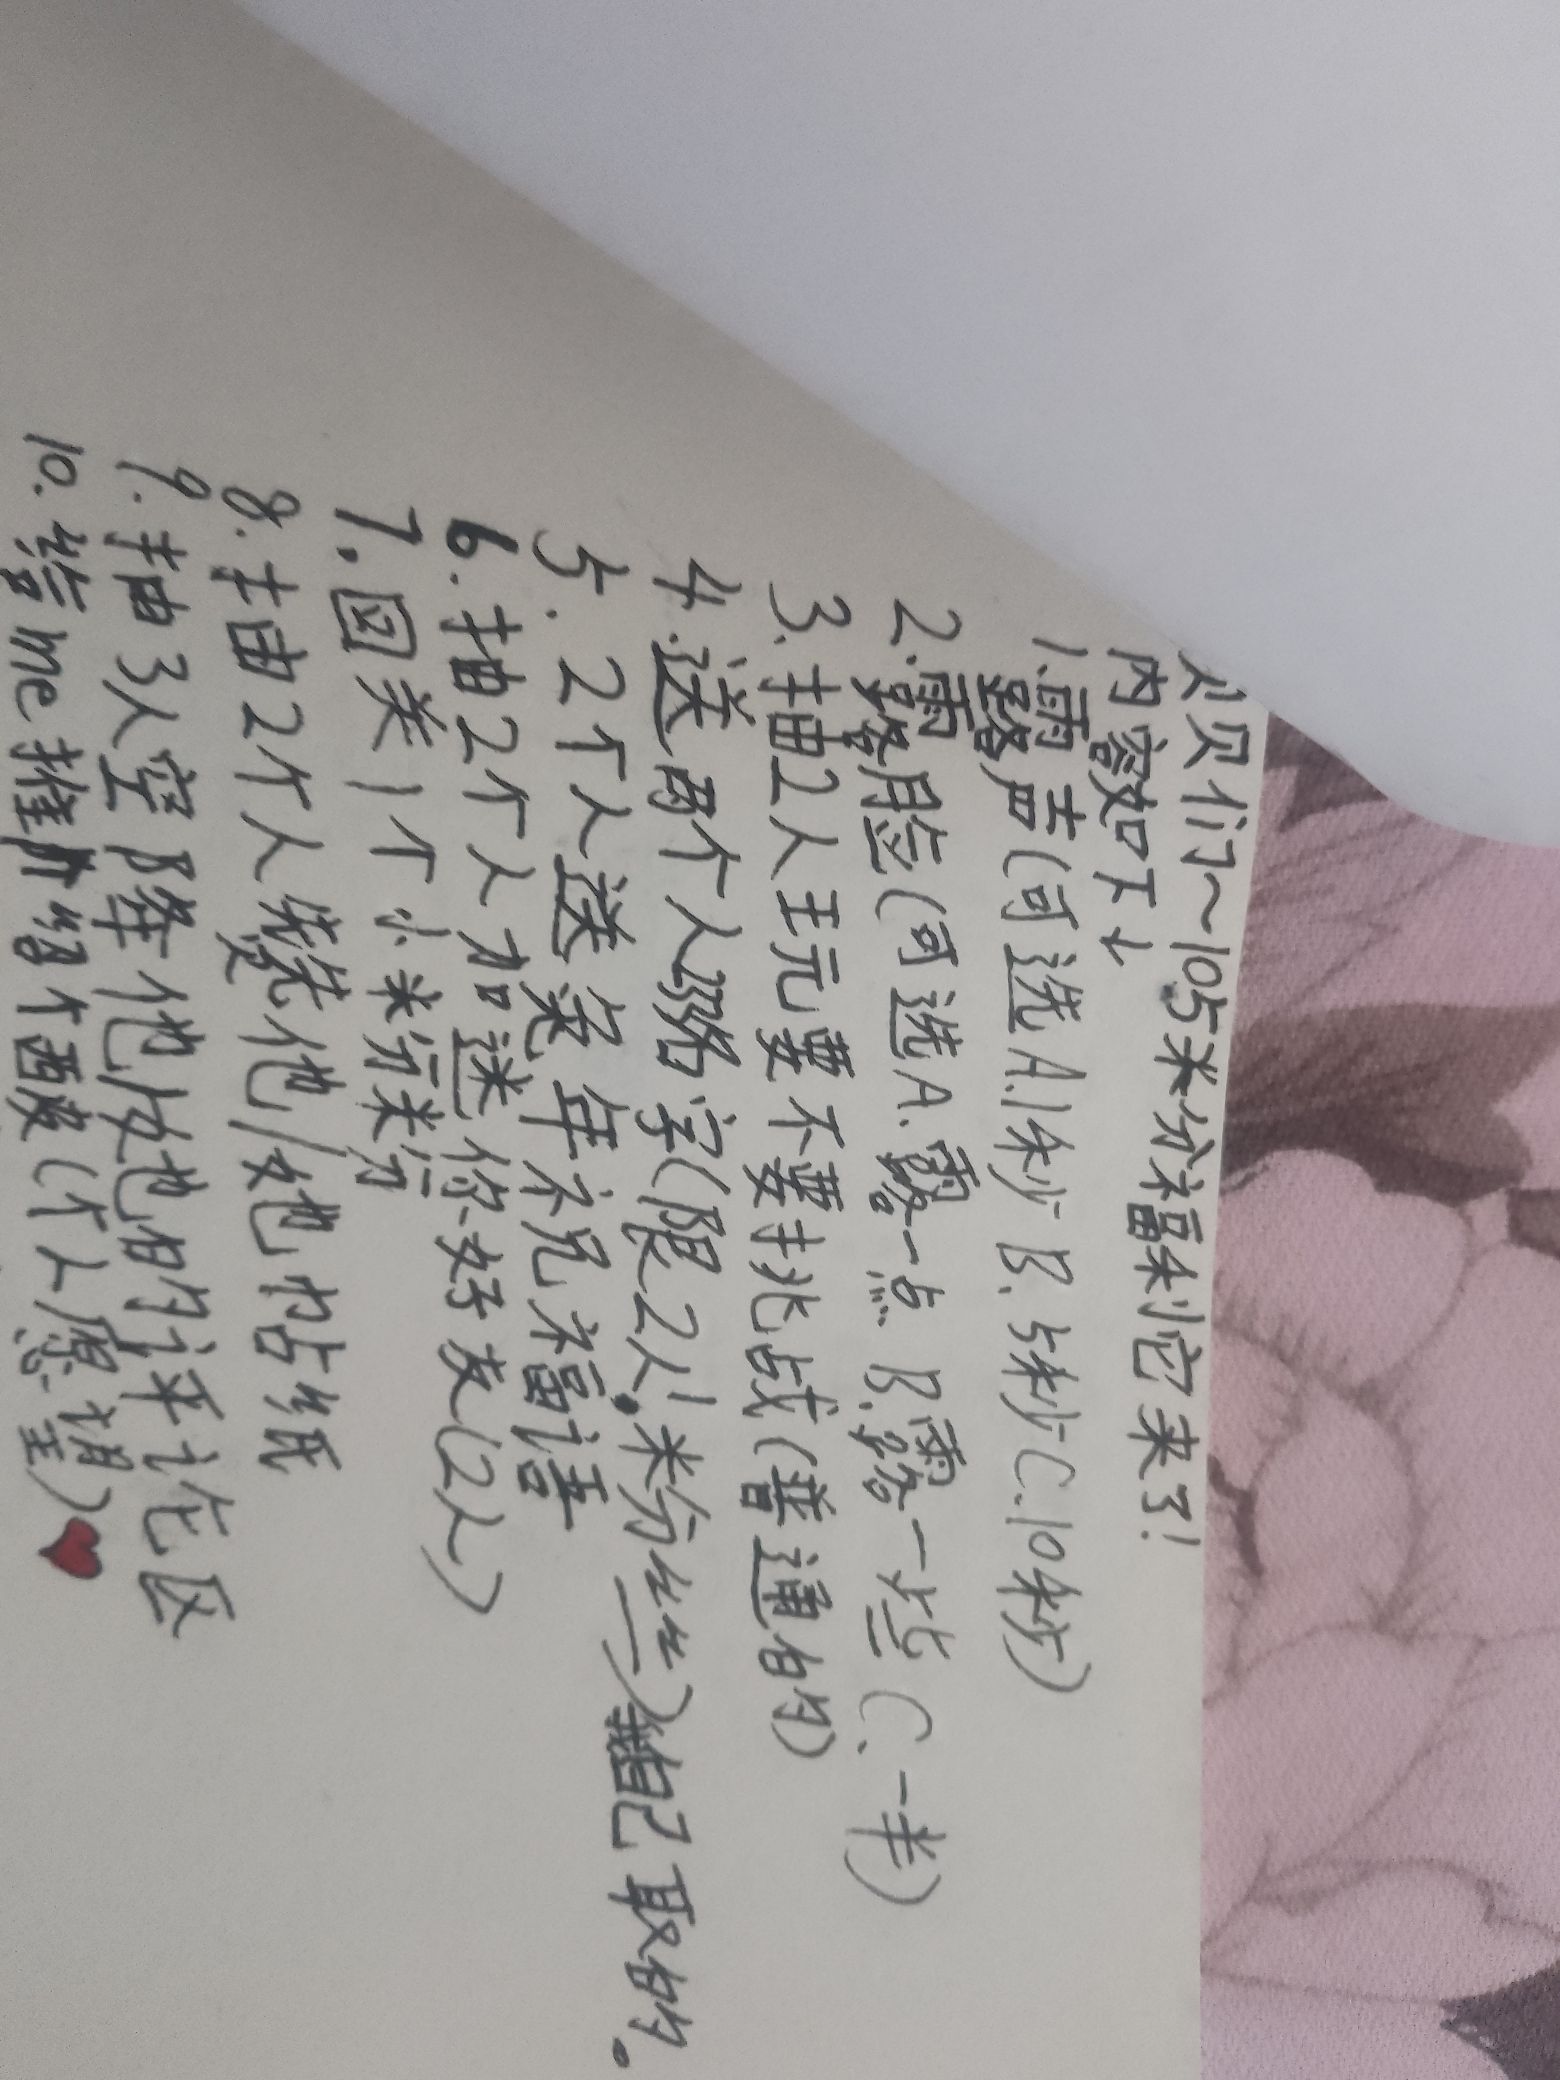 贝们~105米分福利它来了!
内容如下↓
1.露声(可选A.1秒 B.5秒 C.10秒)
2.露脸(可选A.露一点 B.露一些 C.一半)
3.抽2人王元要不要挑战(普通的)
4.送两个人路字(限2人!米分丝)自己取的。
5.2个人送兔年祝福语
6.抽2个人加迷你好友(2人)
7.回关1个小米分米分
8.抽2个人烧他/她 帖纸
9.抽3人空降他/她的评论区
10.给me推荐个西皮(个人愿望)